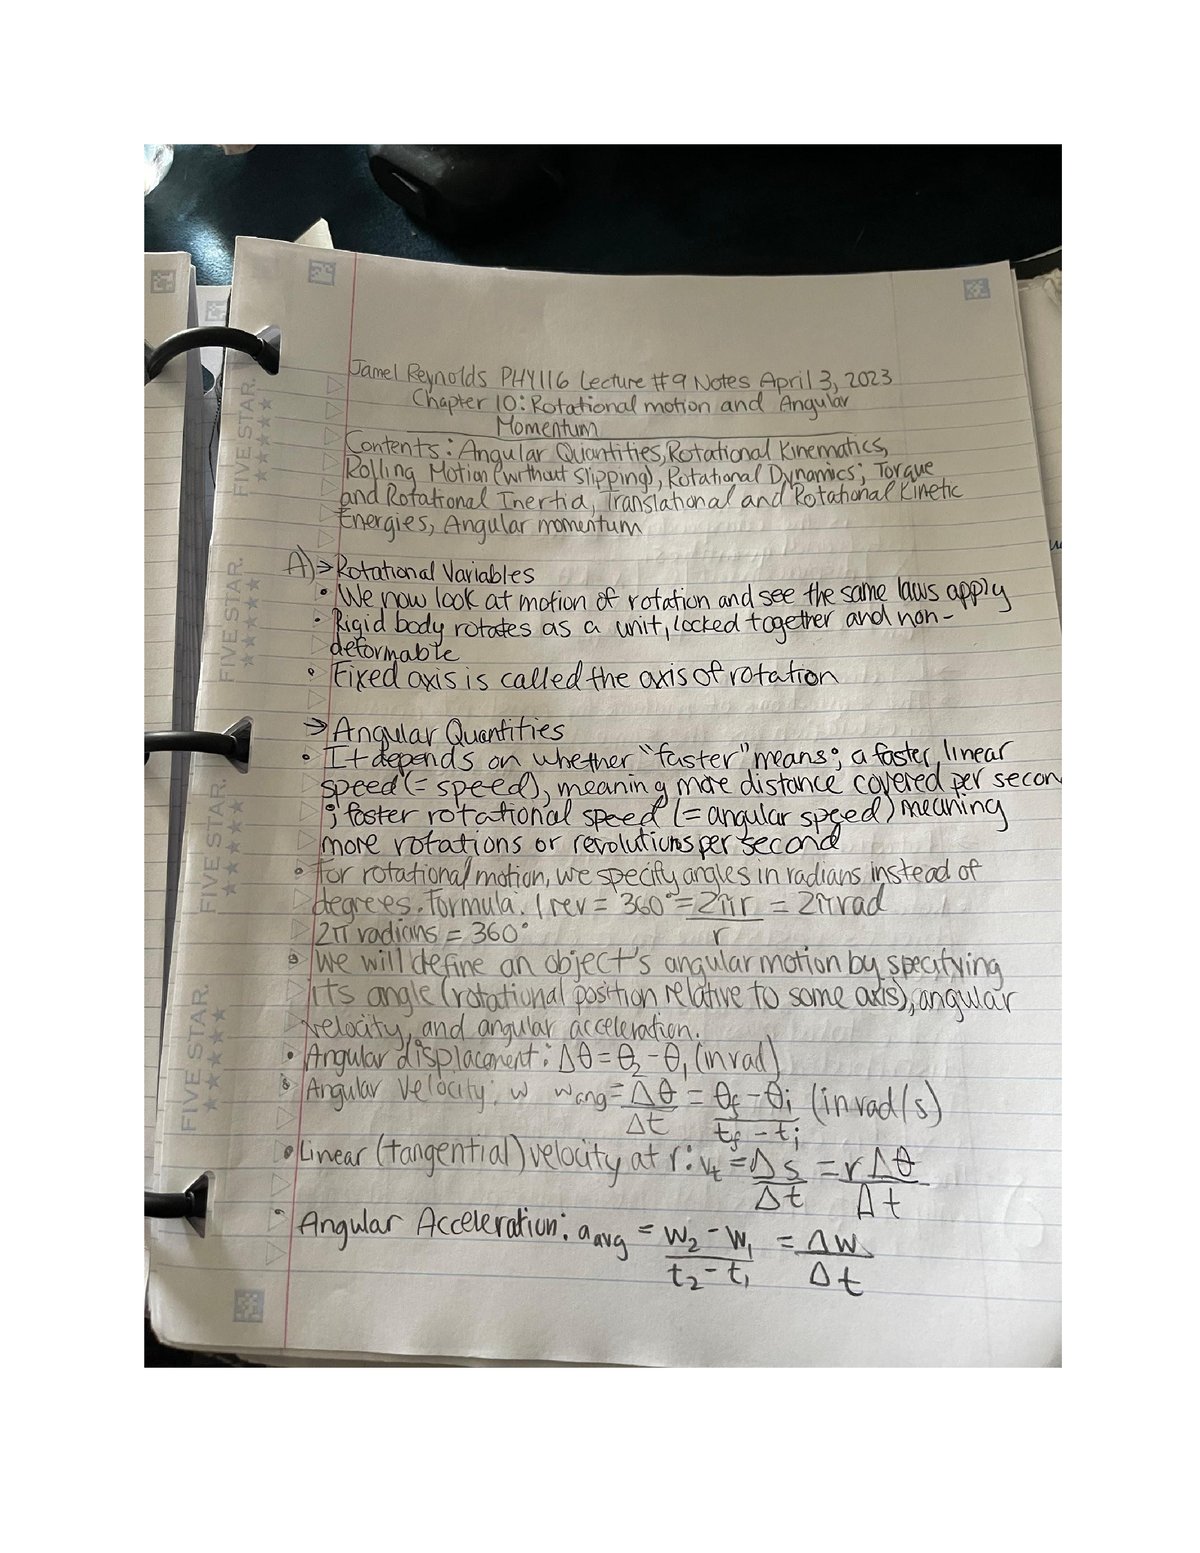 Jamel Reynolds PHY116 Lecture #9 Notes April 3, 2023
Chapter 10: Rotational motion and Angular
Momentum
Contents: Angular Quantities, Rotational Kinematics,
Rolling Motion (without slipping), Rotational Dynamics; Torque
and Rotational Inertia, Translational and Rotational Kinetic
Energies, Angular momentum
A) → Rotational Variables
• We now look at motion of rotation and see the same laws apply
• Rigid body rotates as a unit, locked together and non-
deformable
• Fixed axis is called the axis of rotation
→ Angular Quantities
• It depends on whether "faster" means; a faster linear
speed (= speed), meaning more distance covered per secon
; faster rotational speed (= angular speed) meaning
more rotations or revolutions per second
• For rotational motion, we specify angles in radians instead of
degrees. Formula. 1 rev = 360° = 2πr/r = 2π rad
2π radians = 360°
• We will define an object's angular motion by specifying
its angle (rotational position relative to some axis), angular
velocity, and angular acceleration.
• Angular displacement: Δθ = θ₂ - θ₁ (in rad)
• Angular Velocity: w w ang = Δθ/Δt = θf - θi/tf - ti (in rad/s)
• Linear (tangential) velocity at r: vt = Δs/Δt = rΔθ/Δt
• Angular Acceleration: a avg = w₂ - w₁/t₂ - t₁ = Δw/Δt
FIVE STAR.
FIVE STAR.
FIVE STAR.
FIVE STAR.